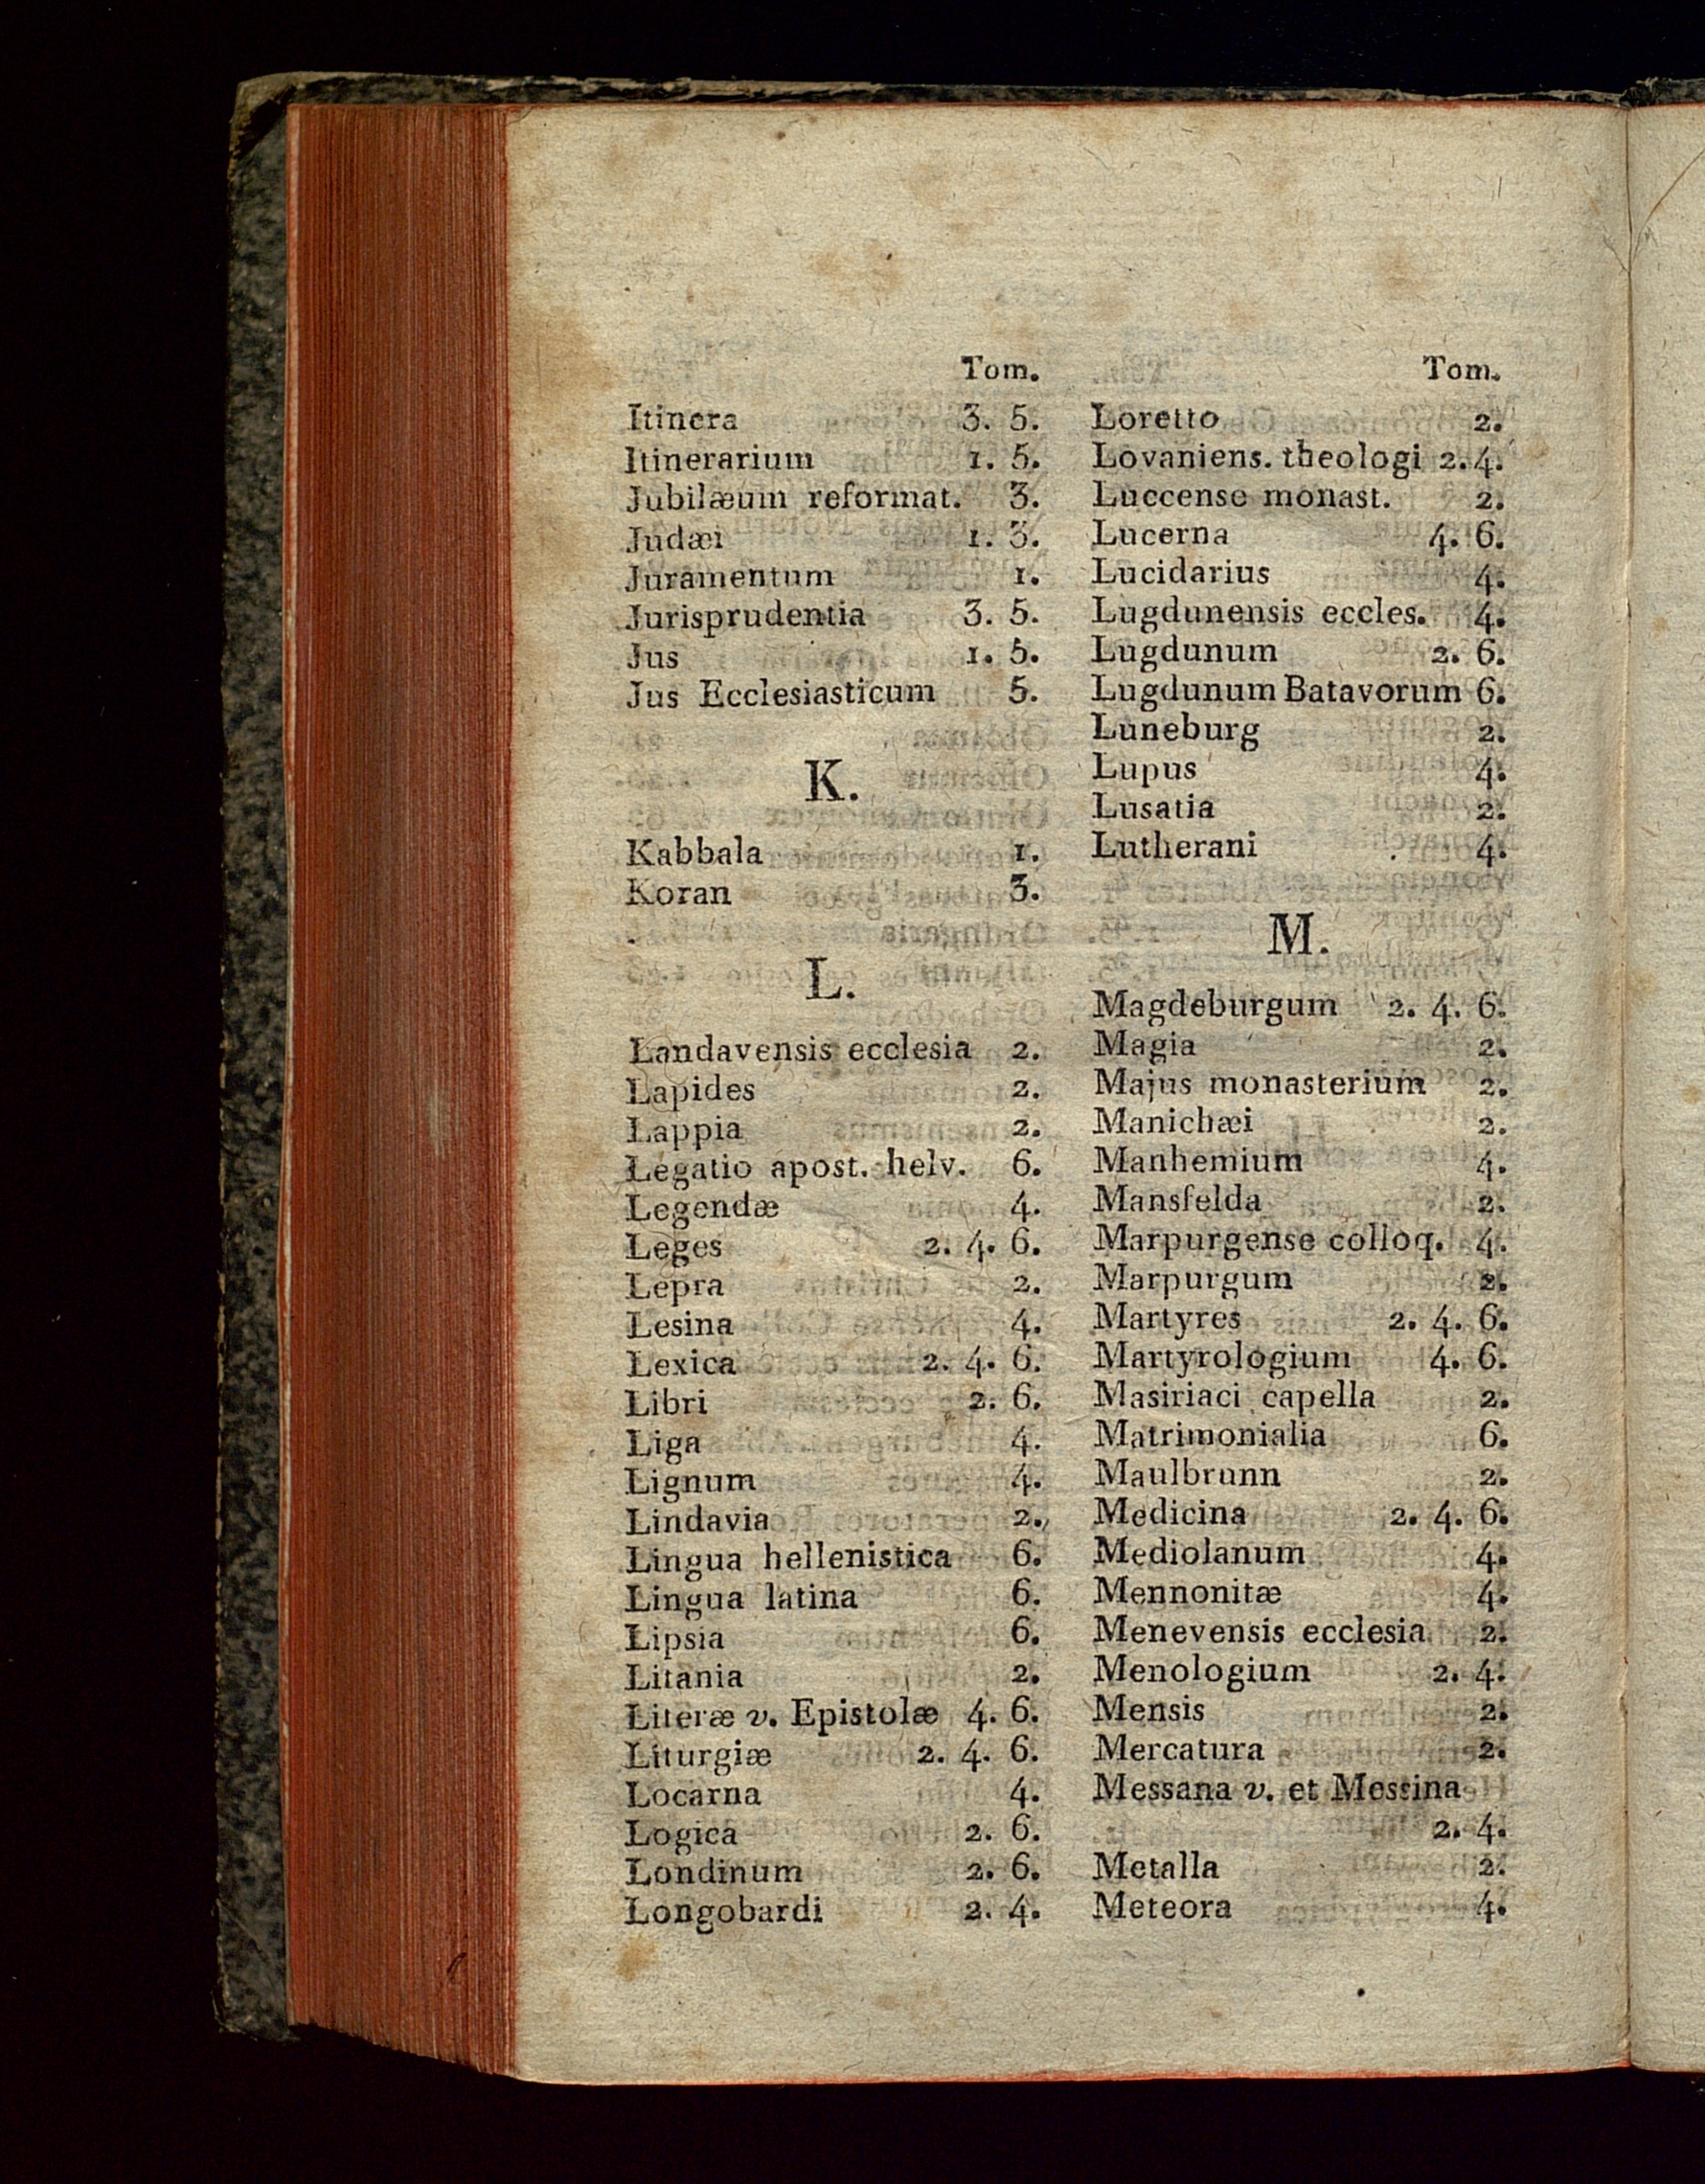 Tom.
Itinera 3. 5.
Itinerarium 1. 5.
Jubilæum reformat. 3.
Judæi 1. 3.
Juramentum 1.
Jurisprudentia 3. 5.
Jus 1. 5.
Jus Ecclesiasticum 5.
K.
Kabbala 1.
Koran 3.
L.
Landavensis ecclesia 2.
Lapides 2.
Lappia 2.
Legatio apost. helv. 6.
Legendæ 4.
Leges 2. 4. 6.
Lepra 2.
Lesina 4.
Lexica 2. 4. 6.
Libri 2. 6.
Liga 4.
Lignum 4.
Lindavia 2.
Lingua hellenistica 6.
Lingua latina 6.
Lipsia 6.
Litania 2.
Literæ v. Epistolæ 4. 6.
Liturgiæ 2. 4. 6.
Locarna 4.
Logica 2. 6.
Londinum 2. 6.
Longobardi 2. 4.
Tom.
Loretto 2.
Lovaniens. theologi 2. 4.
Luccense monast. 2.
Lucerna 4. 6.
Lucidarius 4.
Lugdunensis eccles. 4.
Lugdunum 2. 6.
Lugdunum Batavorum 6.
Luneburg 2.
Lupus 4.
Lusatia 2.
Lutherani 4.
M.
Magdeburgum 2. 4. 6.
Magia 2.
Majus monasterium 2.
Manichæi 2.
Manhemium 4.
Mansfelda 2.
Marpurgense colloq. 4.
Marpurgum 2.
Martyres 2. 4. 6.
Martyrologium 4. 6.
Masiriaci capella 2.
Matrimonialia 6.
Maulbrunn 2.
Medicina 2. 4. 6.
Mediolanum 4.
Mennonitæ 4.
Menevensis ecclesia 2.
Menologium 2. 4.
Mensis 2.
Mercatura 2.
Messana v. et Messina
2. 4.
Metalla 2.
Meteora 4.